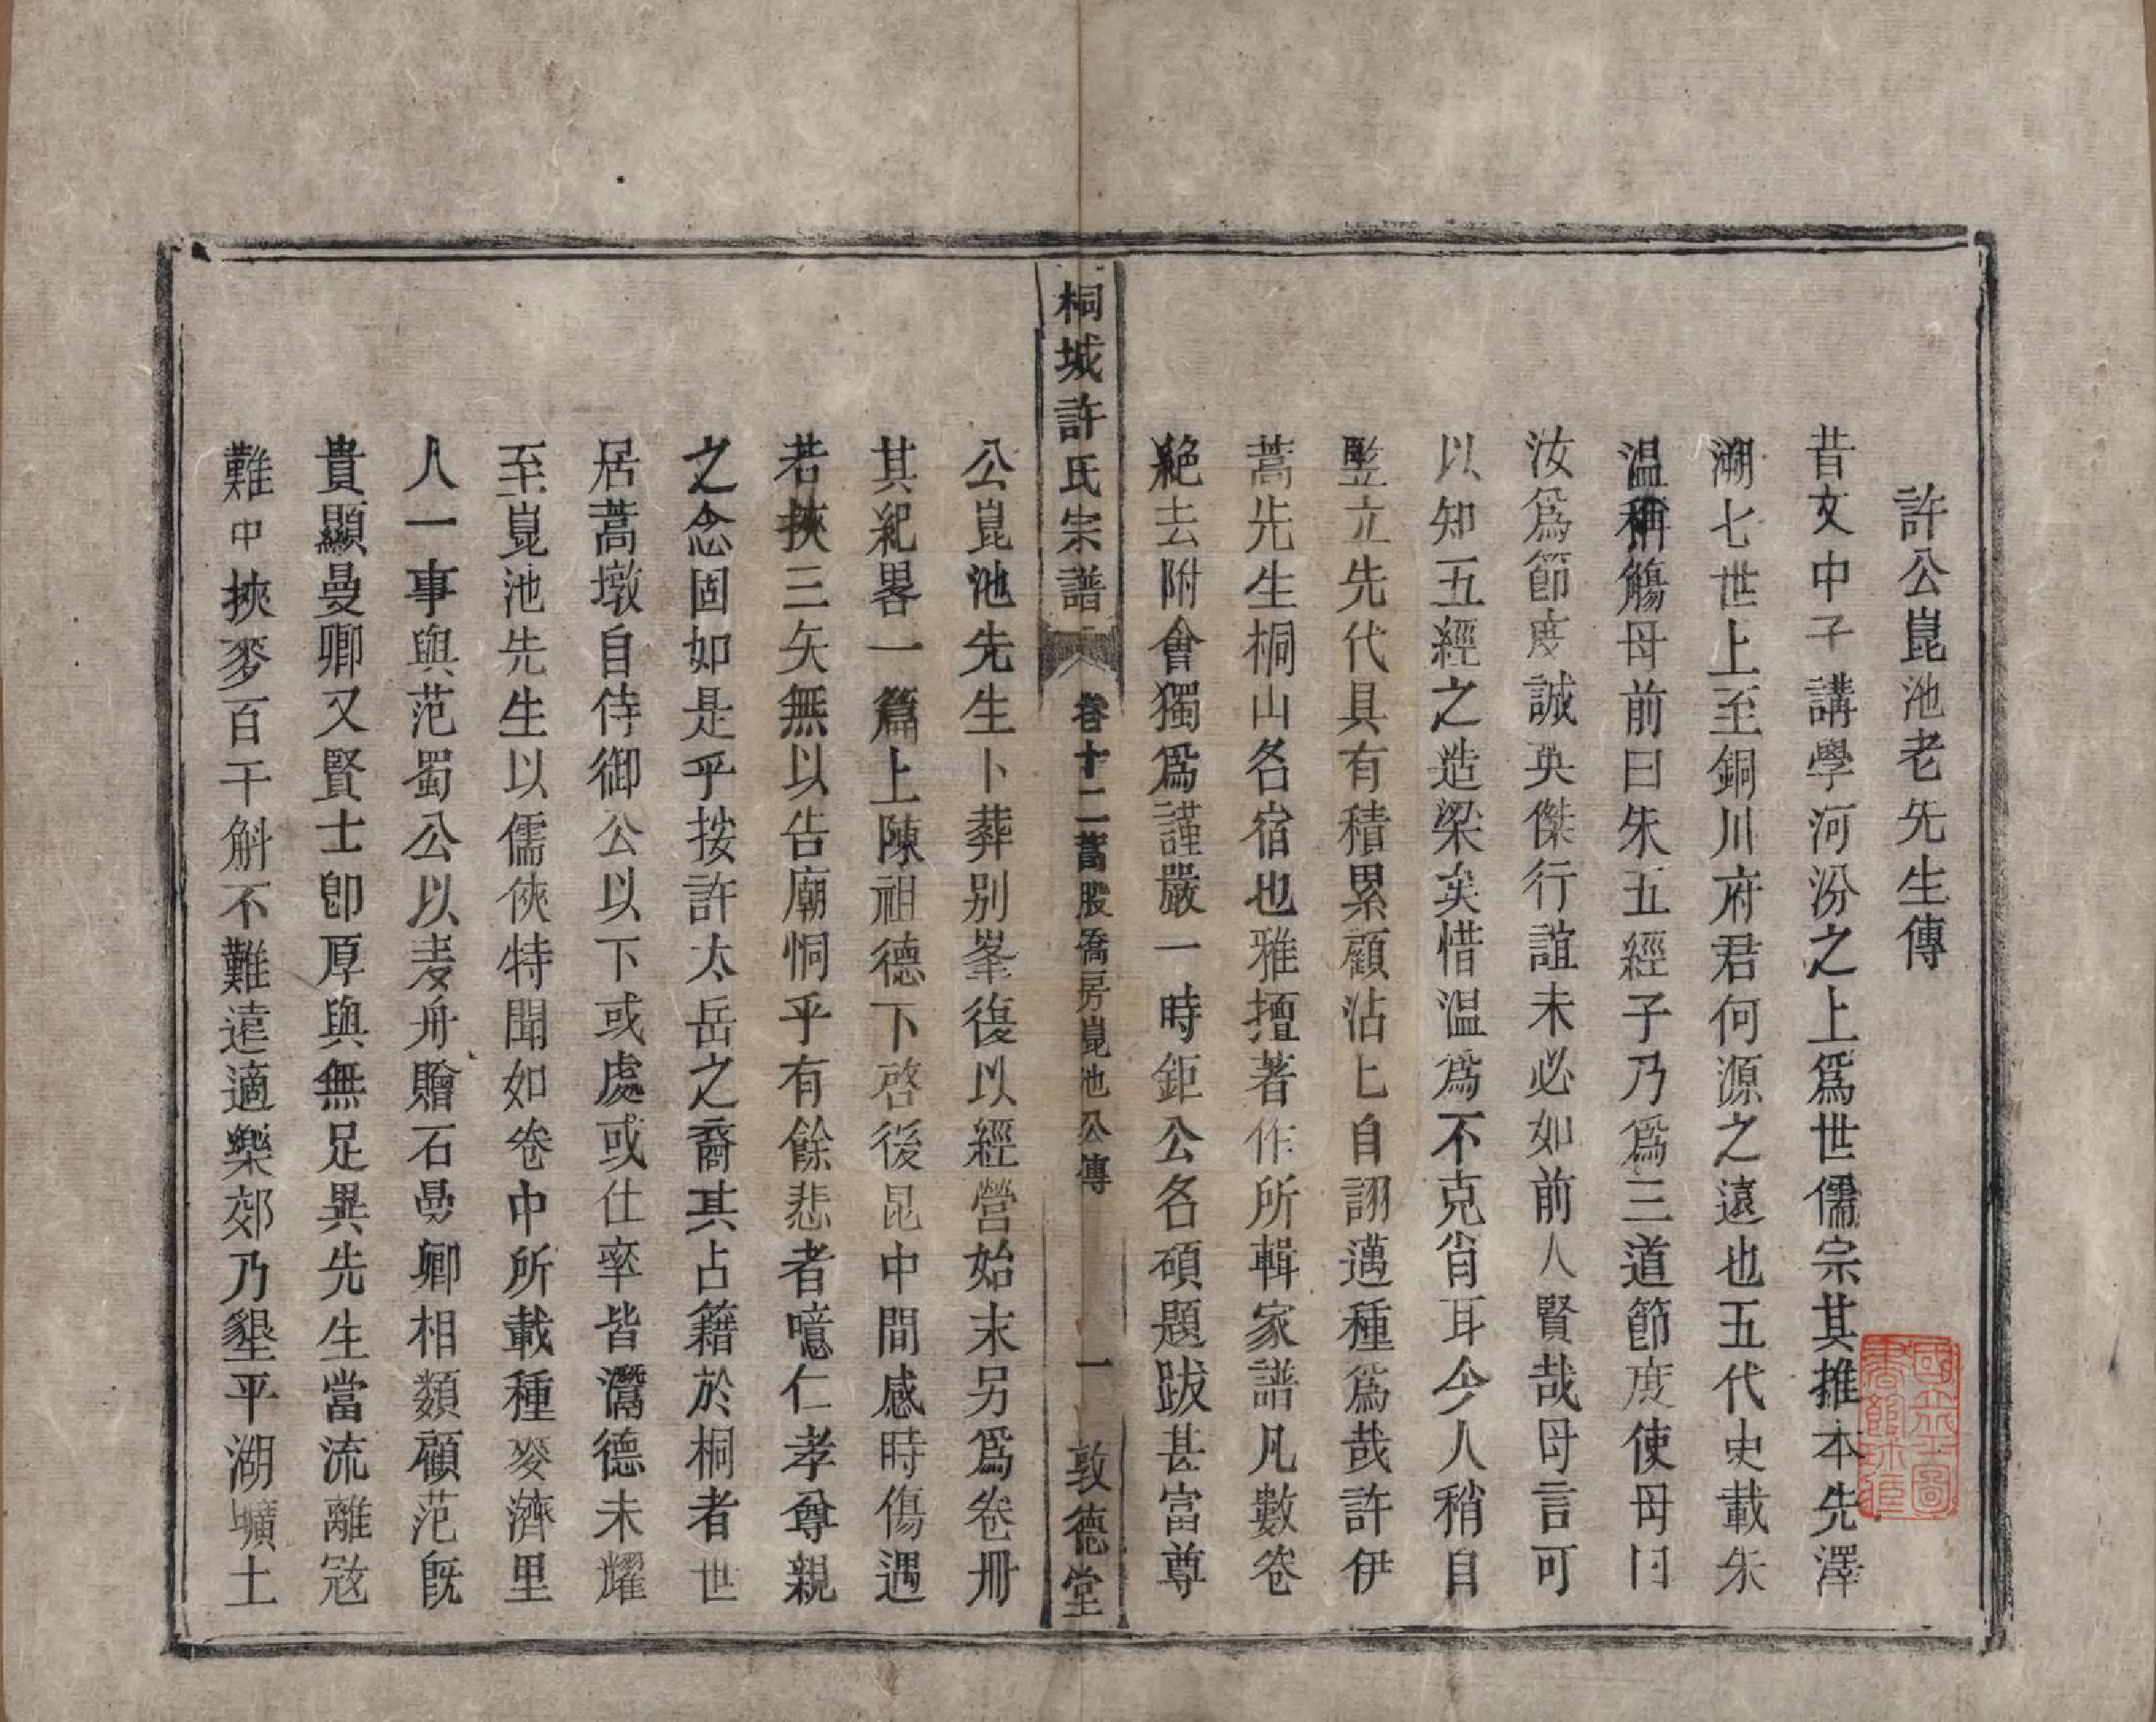 許公崑池老先生傳
昔文中子講學河汾之上爲世儒宗其推本先澤
溯七世上至銅川府君何源之遠也五代史載朱
温稱觴母前曰朱五經子乃爲三道節度使母曰
汝爲節度誠英傑行誼未必如前人賢哉母言可
以知五經之造梁矣惜温爲不克肖耳今人稍自
竪立先代具有積累顧沾匕自詡邁種爲哉許伊
蒿先生桐山名宿也雅擅著作所輯家譜凡數卷
絕去附會獨爲謹嚴一時鉅公名碩題跋甚富尊
桐城許氏宗譜
卷十二蒿股僑房崑池公傳
一
敦德堂
公崑池先生卜葬别峯復以經營始末另爲卷冊
其紀畧一篇上陳祖德下啓後昆中間感時傷遇
若挾三矢無以告廟恫乎有餘悲者噫仁孝尊親
之念固如是乎按許太岳之裔其占籍於桐者世
居蒿墩自侍御公以下或處或仕率皆濳德未耀
至崑池先生以儒俠特聞如卷中所載種麥濟里
人一事與范蜀公以麦舟贈石曼卿相類顧范旣
貴顯曼卿又賢士卽厚與無足異先生當流離寇
難中挾麥百千斛不難遠適樂郊乃墾平湖壙土
國立北平圖
書館珍藏